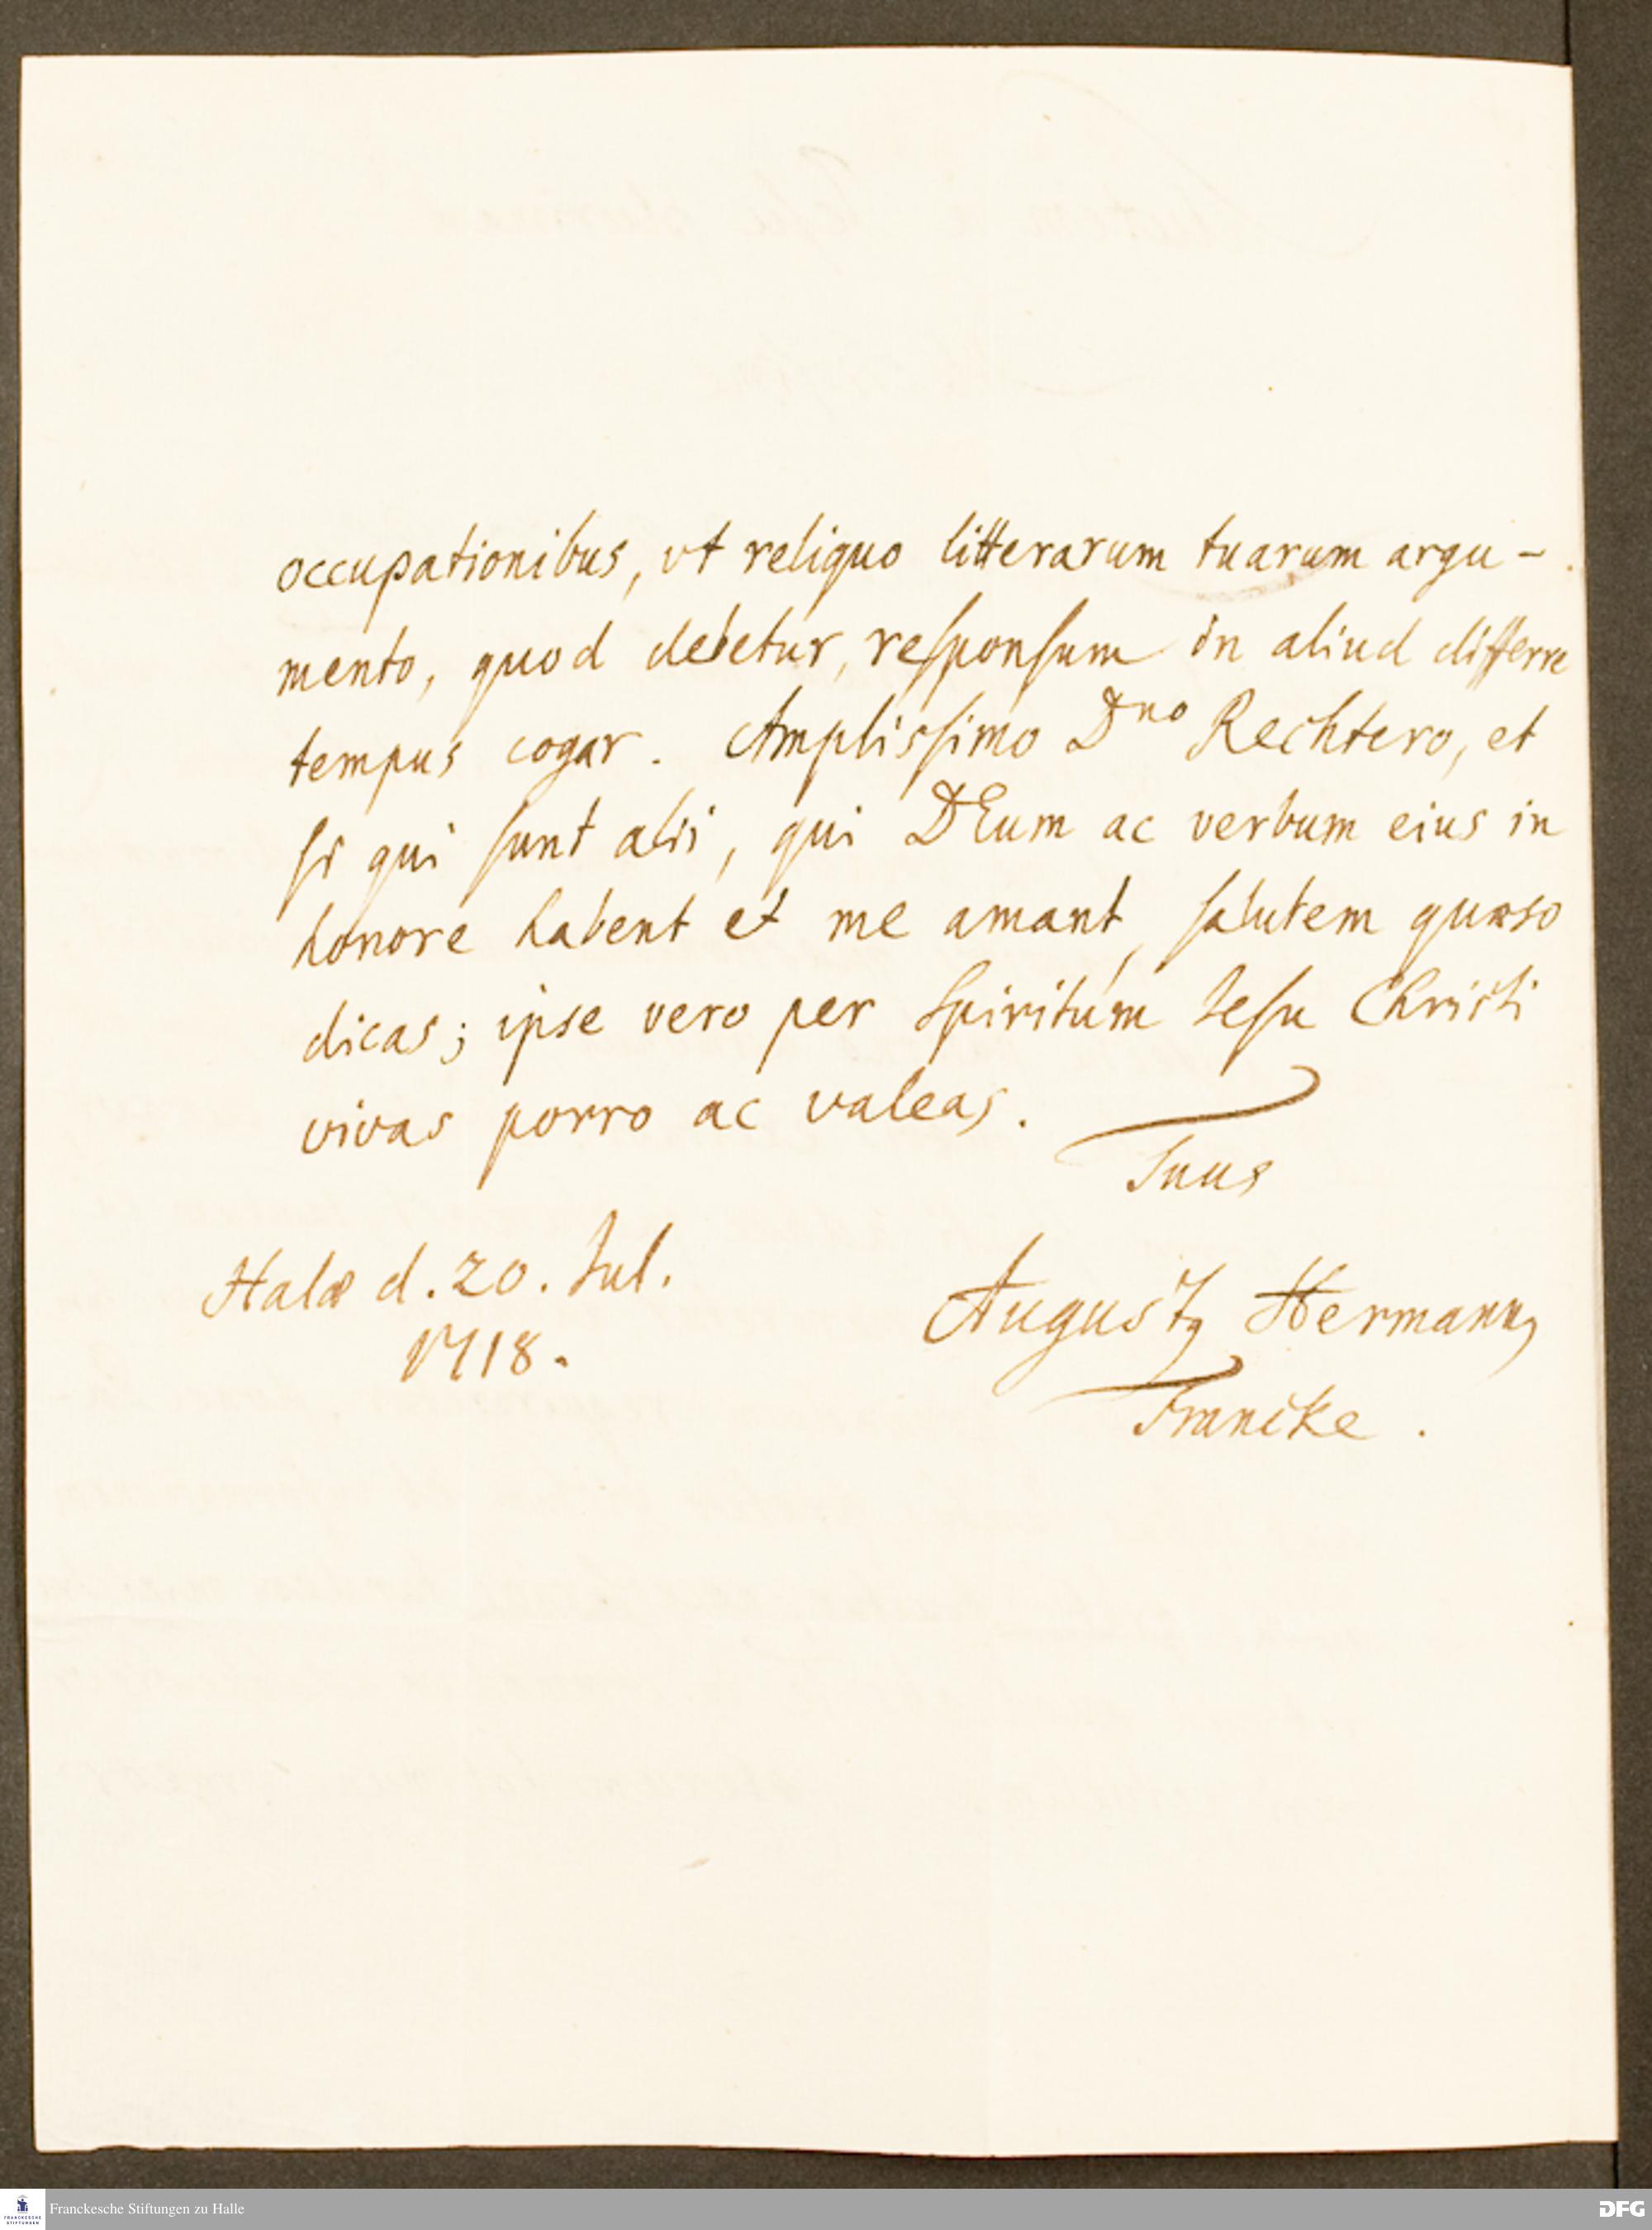 occupationibus, vt reliquo litterarum tuarum argu-
mento, quod debetur, reſponſum in aliud differre
tempus cogar. Ampliſsimo Dno Rechtero, et
ſi qui ſunt alii, qui DEum ac verbum eius in
honore habent et me amant, ſalutem quæso
dicas; ipse vero per Spiritum Ieſu Chriſti
vivas porro ac valeas.
Tuus
Halæ d. 20. Iul.
1718.
Augustꝰ Hermannꝰ
Francke.
Franckesche Stiftungen zu Halle
FRANCKESCHE
STIFTUNGEN
DFG